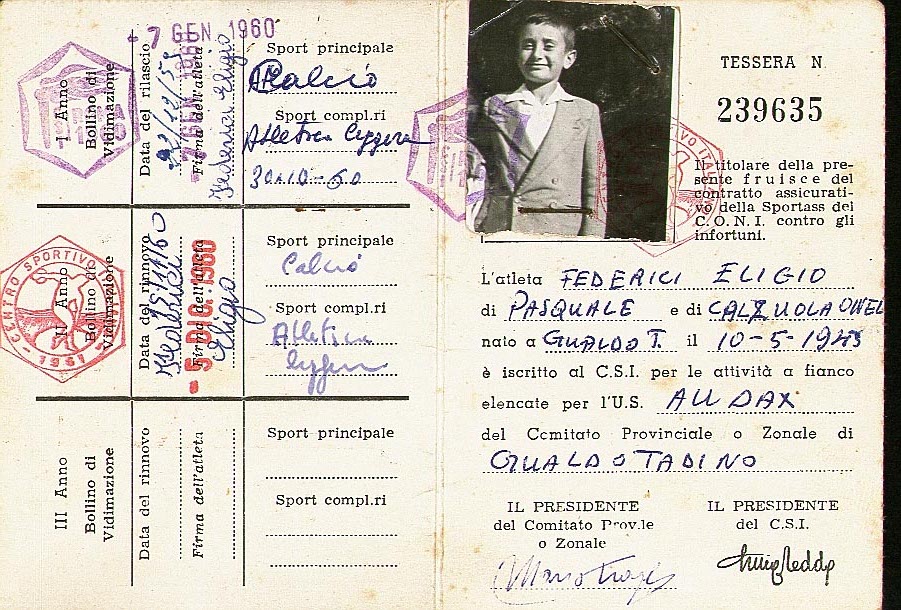 7 GEN 1960
I Anno
Bollino di
Vidimazione
Data del rilascio
22/12/59
Firma dell'atleta
Federici Eligio
Sport principale
Calcio
Sport compl.ri
Atletica leggera
30-10-60
CENTRO SPORTIVO
1961
II Anno
Bollino di
Vidimazione
Data del rinnovo
Firma dell'atleta
Federici
Eligio
- 5 DIC. 1960
Sport principale
Calcio
Sport compl.ri
Atletica
leggera
III Anno
Bollino di
Vidimazione
Data del rinnovo
Firma dell'atleta
Sport principale
Sport compl.ri
TESSERA N.
239635
Il titolare della pre-
sente fruisce del
contratto assicurati-
vo della Sportass del
C.O.N.I. contro gli
infortuni.
L'atleta FEDERICI ELIGIO
di PASQUALE e di CALZUOLA ONEL
nato a GUALDO T. il 10-5-1948
è iscritto al C.S.I. per le attività a fianco
elencate per l'U.S. AUDAX
del Comitato Provinciale o Zonale di
GUALDO TADINO
IL PRESIDENTE
del Comitato Prov.le
o Zonale
IL PRESIDENTE
del C.S.I.